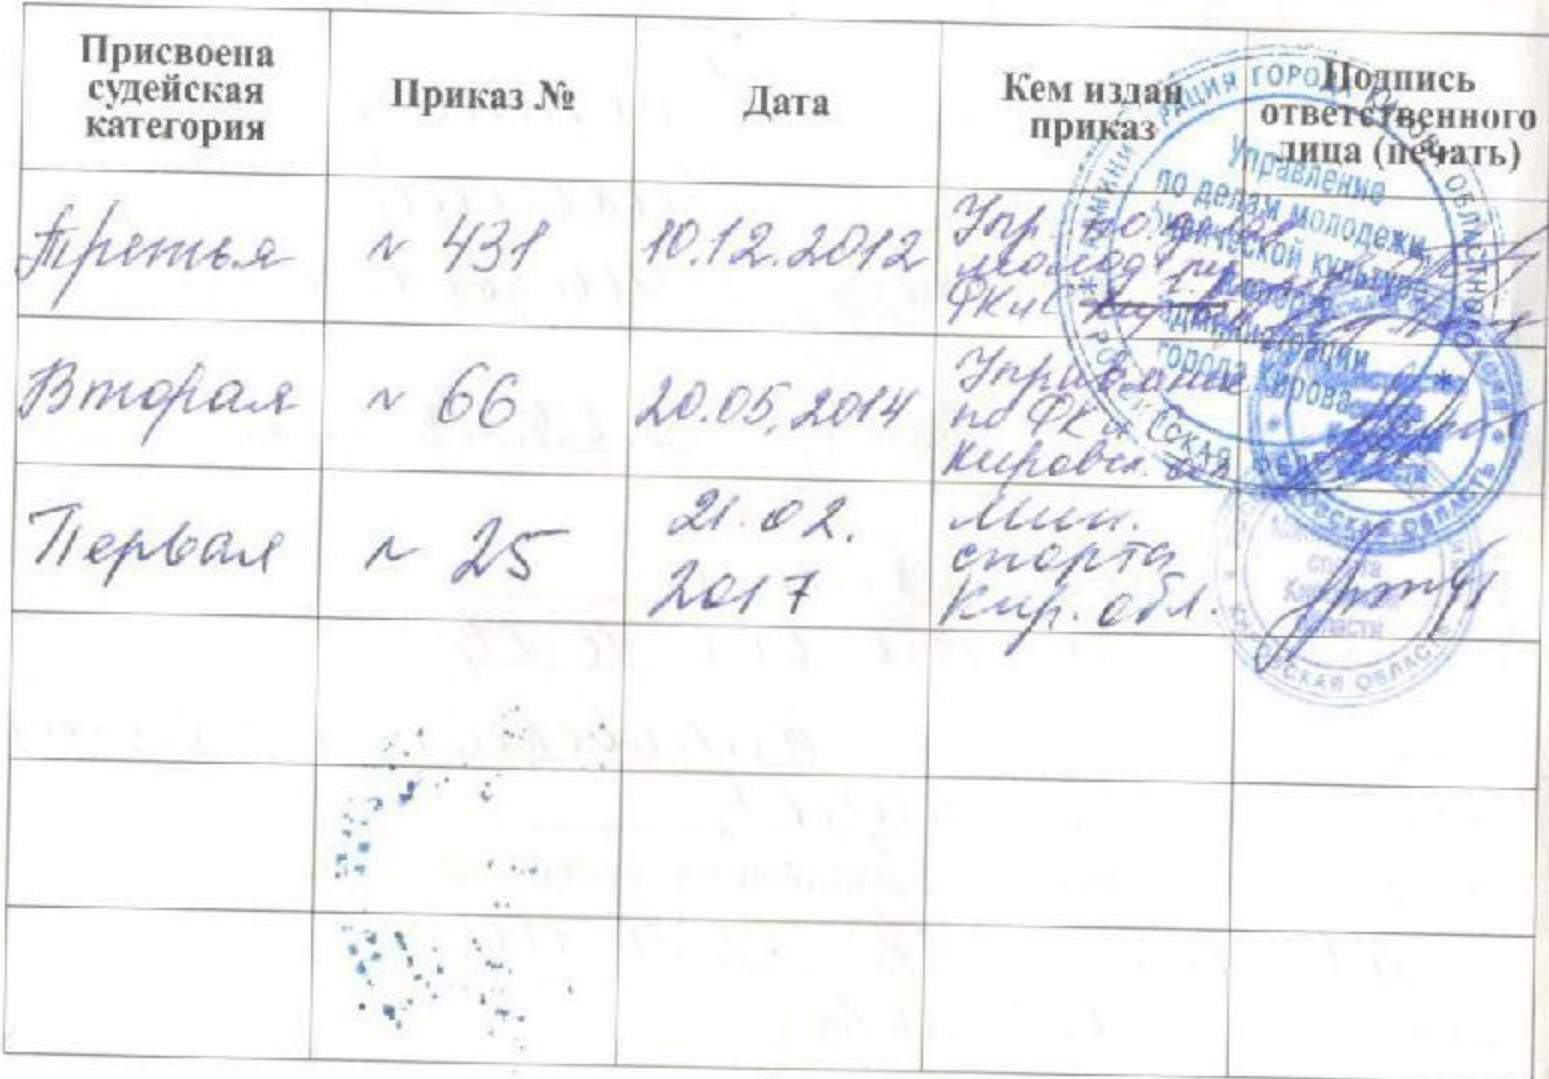 Присвоена
судейская
категория
Приказ №
Дата
Кем издан
приказ
Подпись
ответственного
лица (печать)
Третья
№ 431
10.12.2012
Упр. по делам
молод.
ФК и С
Вторая
№ 66
20.05.2014
Управление
по ФК и
Кировск.
Первая
№ 25
21.02.
2017
Мин.
спорта
Кир. обл.
Управление
по делам молодежи,
физической культуре
и спорту
администрации
города Кирова
спорта
Кировской
области
КИРОВСКАЯ ОБЛАСТЬ